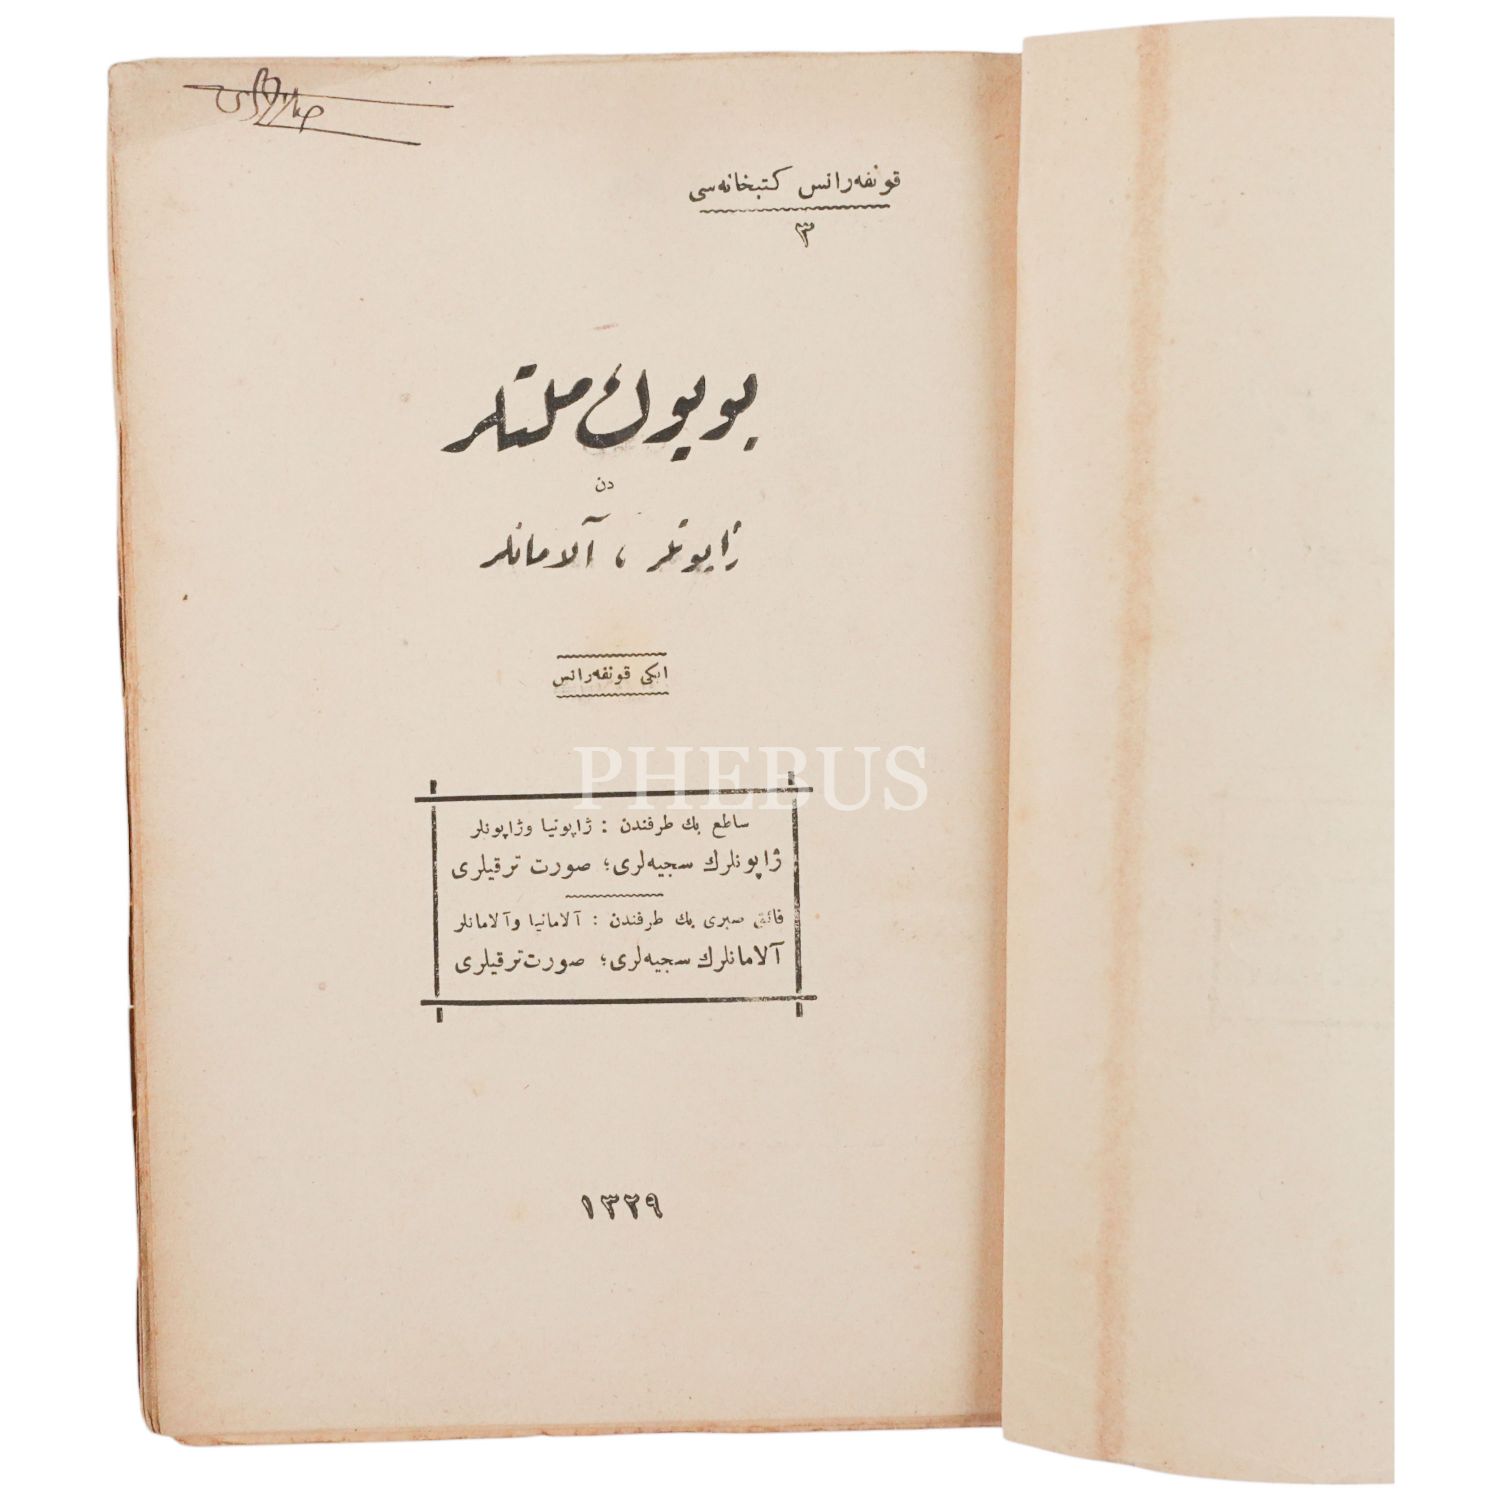 قونفه‌رانس كتبخانه‌سی
٣
بويوك ملتلر
دن
ژاپونلر ، آلامانلر
ايكی قونفه‌رانس
PHEBUS
ساطع بك طرفندن : ژاپونيا وژاپونلر
ژاپونلرك سجيه‌لری؛ صورت ترقيلری
فائق صبری بك طرفندن : آلامانيا وآلامانلر
آلامانلرك سجيه‌لری؛ صورت ترقيلری
١٣٢٩